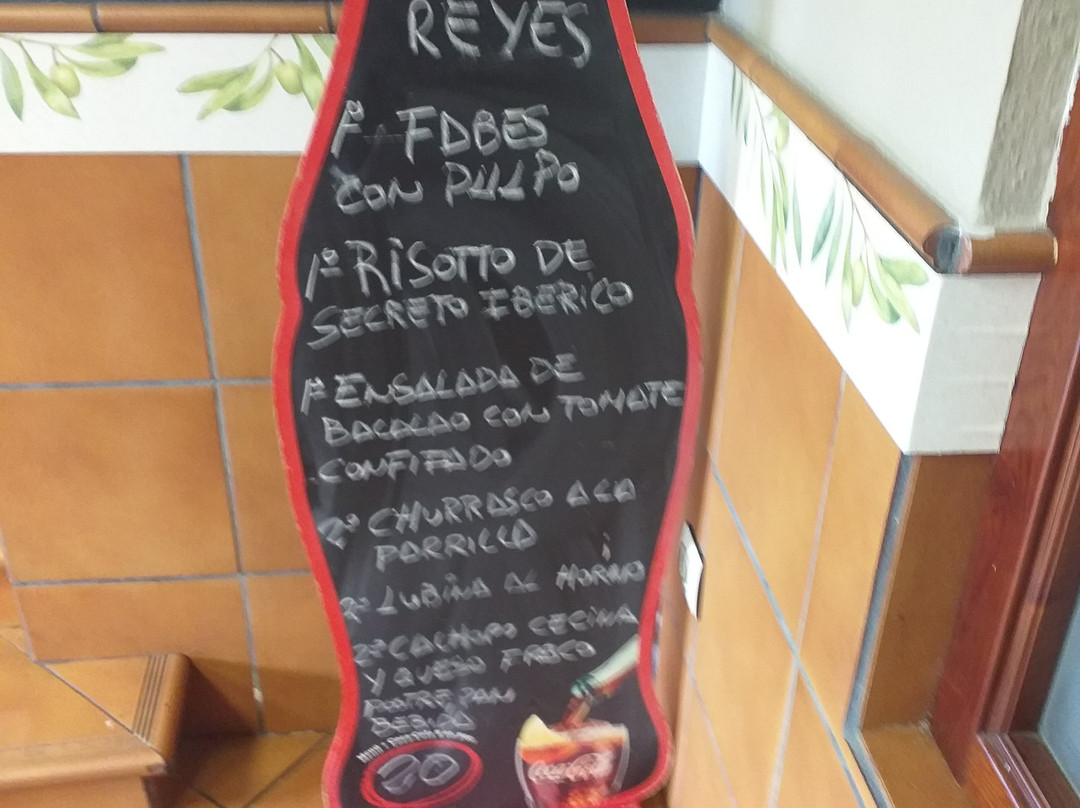 REYES
1º FABES
CON PULPO
1º RISOTTO DE
SECRETO IBERICO
1º ENSALADA DE
BACALAO CON TOMATE
CONFITADO
2º CHURRASCO A LA
PARRILLA
2º LUBINA AL HORNO
2º CACHOPO CECINA
Y QUESO FRESCO
POSTRE PAN
BEBIDA
20
Coca-Cola